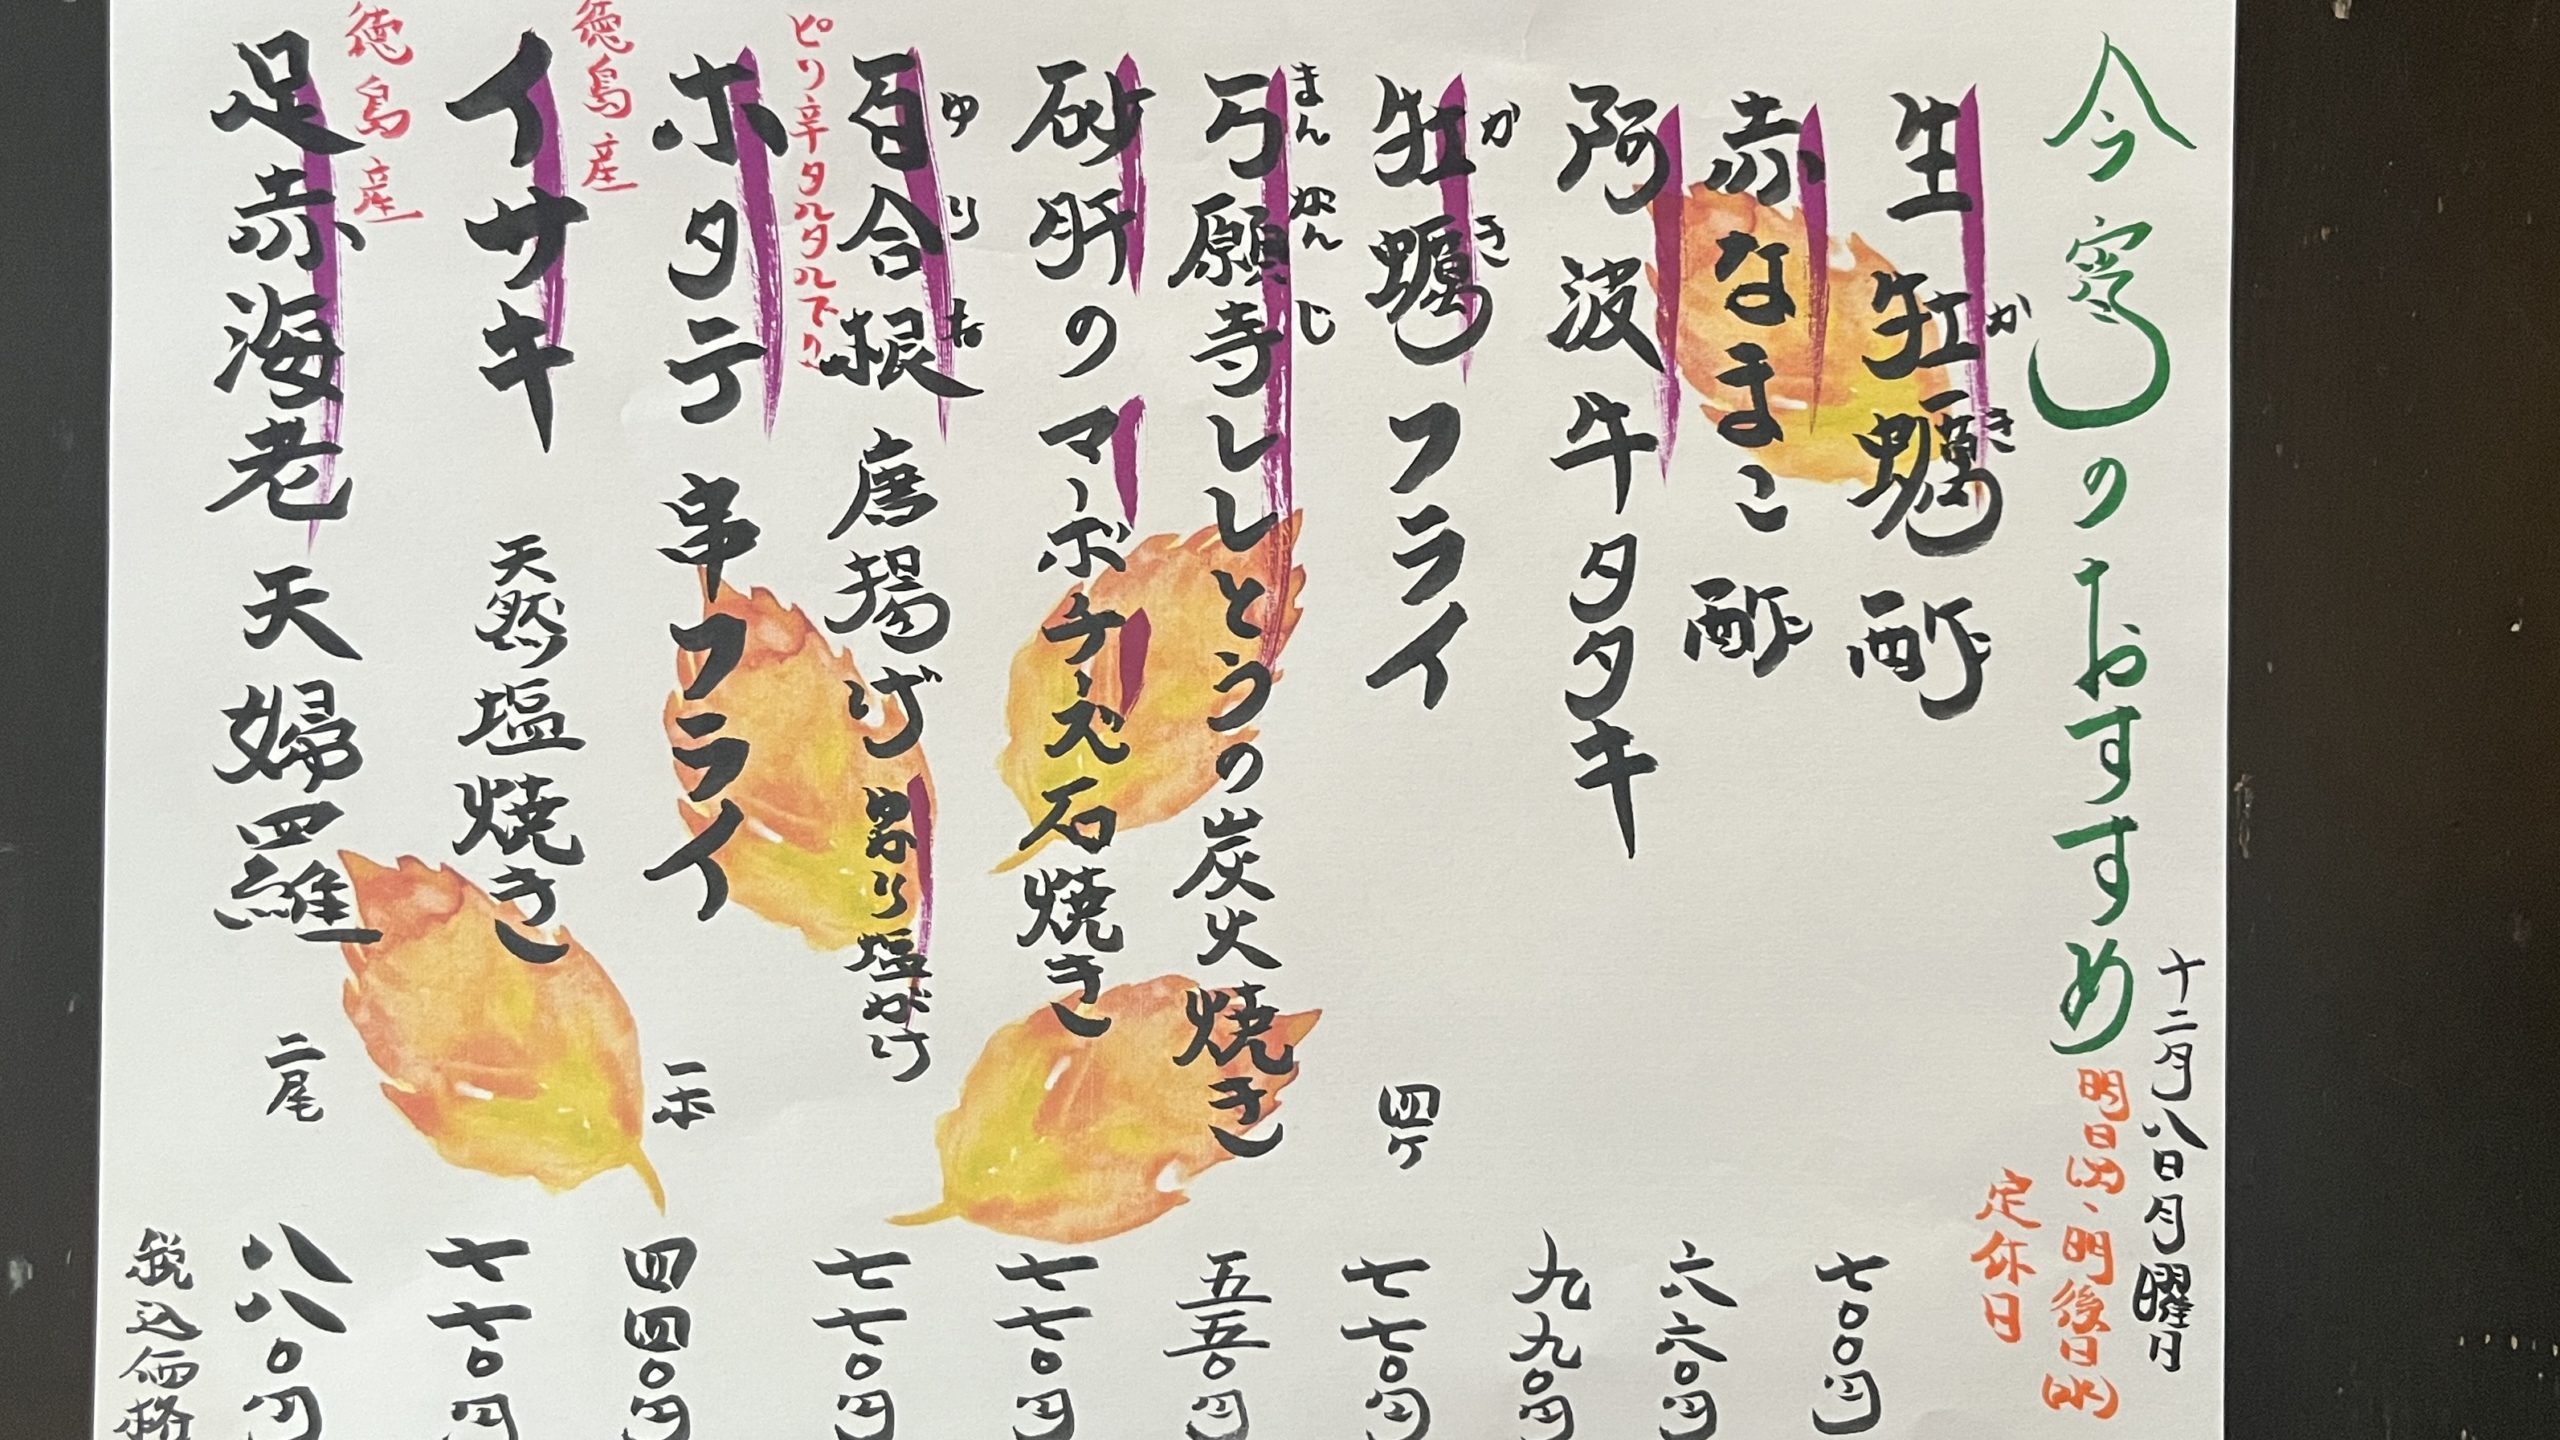 今宵のおすすめ
十二月八日月曜日
明日(火)、明後日(水)
定休日
生牡蠣酢 七〇〇円
かき
赤なまこ酢 六六〇円
阿波牛タタキ 九九〇円
牡蠣フライ 四ヶ 七七〇円
かき
万願寺ししとうの炭火焼き 五五〇円
まんがんじ
砂肝のマーボチーズ石焼き 七七〇円
百合根唐揚げ 塩がけ 七七〇円
ゆりね
ピリ辛タルタル
ホタテ串フライ 一本 四四〇円
徳島産
イサキ 天然塩焼き 七七〇円
徳島産
足赤海老天婦羅 二尾 八八〇円
税込価格